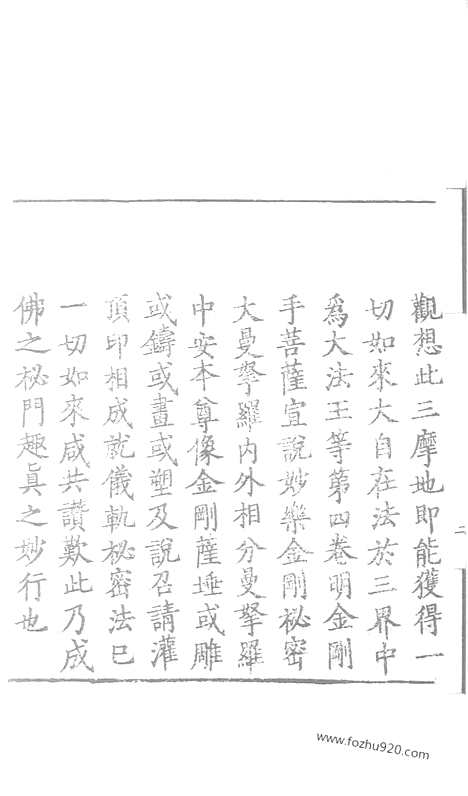 觀想此三摩地即能獲得一
切如來大自在法於三界中
爲大法王等第四卷明金剛
手菩薩宣說妙樂金剛祕密
大曼拏羅內外相分曼拏羅
中安本尊像金剛薩埵或雕
或鑄或畫或塑及說召請灌
頂印相成就儀軌秘密法已
一切如來咸共讚歎此乃成
佛之秘門趣眞之妙行也
二
www.fozhu920.com